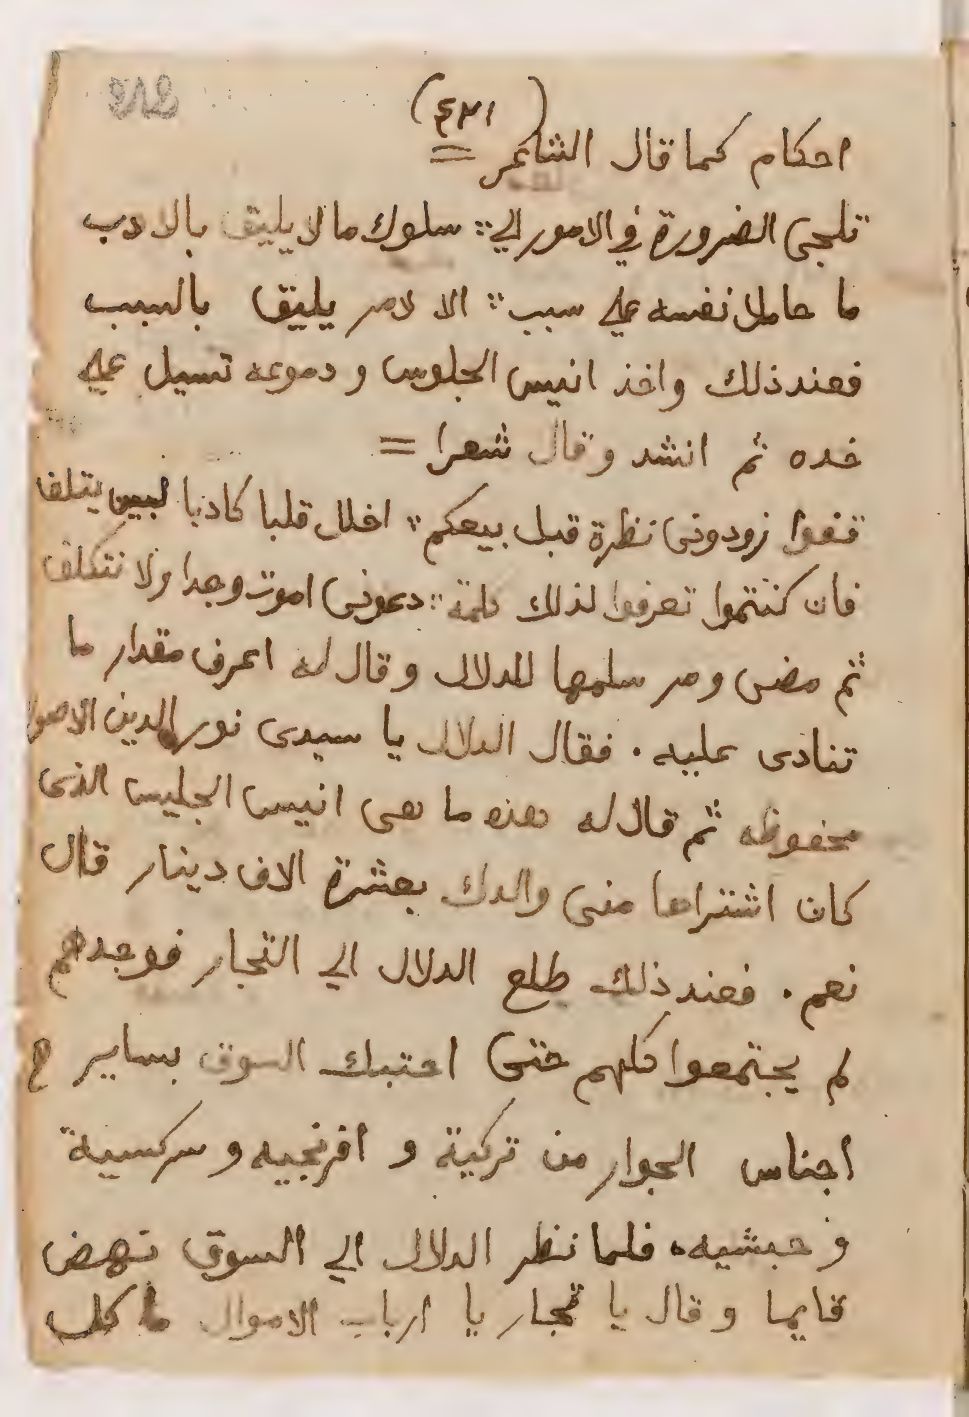 (٤٣١)
احكام كما قال الشاعر =
تلجى الضرورة في الامور الي :: سلوك ما لا يليق بالادب
ما حامل نفسه علي سبب :: الا لامر يليق بالسبب
فعند ذلك واخذ انيس الجلوس و دموعه تسيل علي
خده ثم انشد و قال شعرا =
قفوا زودونى نظرة قبل بيعكم :: اعلل قلبا كاد بالبين يتلف
فان كنتموا تعرفوا لذلك كلمة :: دعونى اموت وجدا ولا نتكلف
ثم مضى و مر سلمها للدلال و قال له اعرف مقدار ما
تنادى عليه . فقال الدلال يا سيدى نور الدين الاصول
محفوظه ثم قال له هذه ما هى انيس الجليس الذى
كان اشتراها منى والدك بعشرة الاف دينار قال
نعم . فعند ذلك طلع الدلال الي التجار فوجدهم
لم يجتمعوا كلهم حتى احتبك السوق بساير
اجناس الجوار من تركية و افرنجيه و سركسية
و حبشيه فلما نظر الدلال الي السوق نهض
قايما و قال يا تجار يا ارباب الاموال ما كل